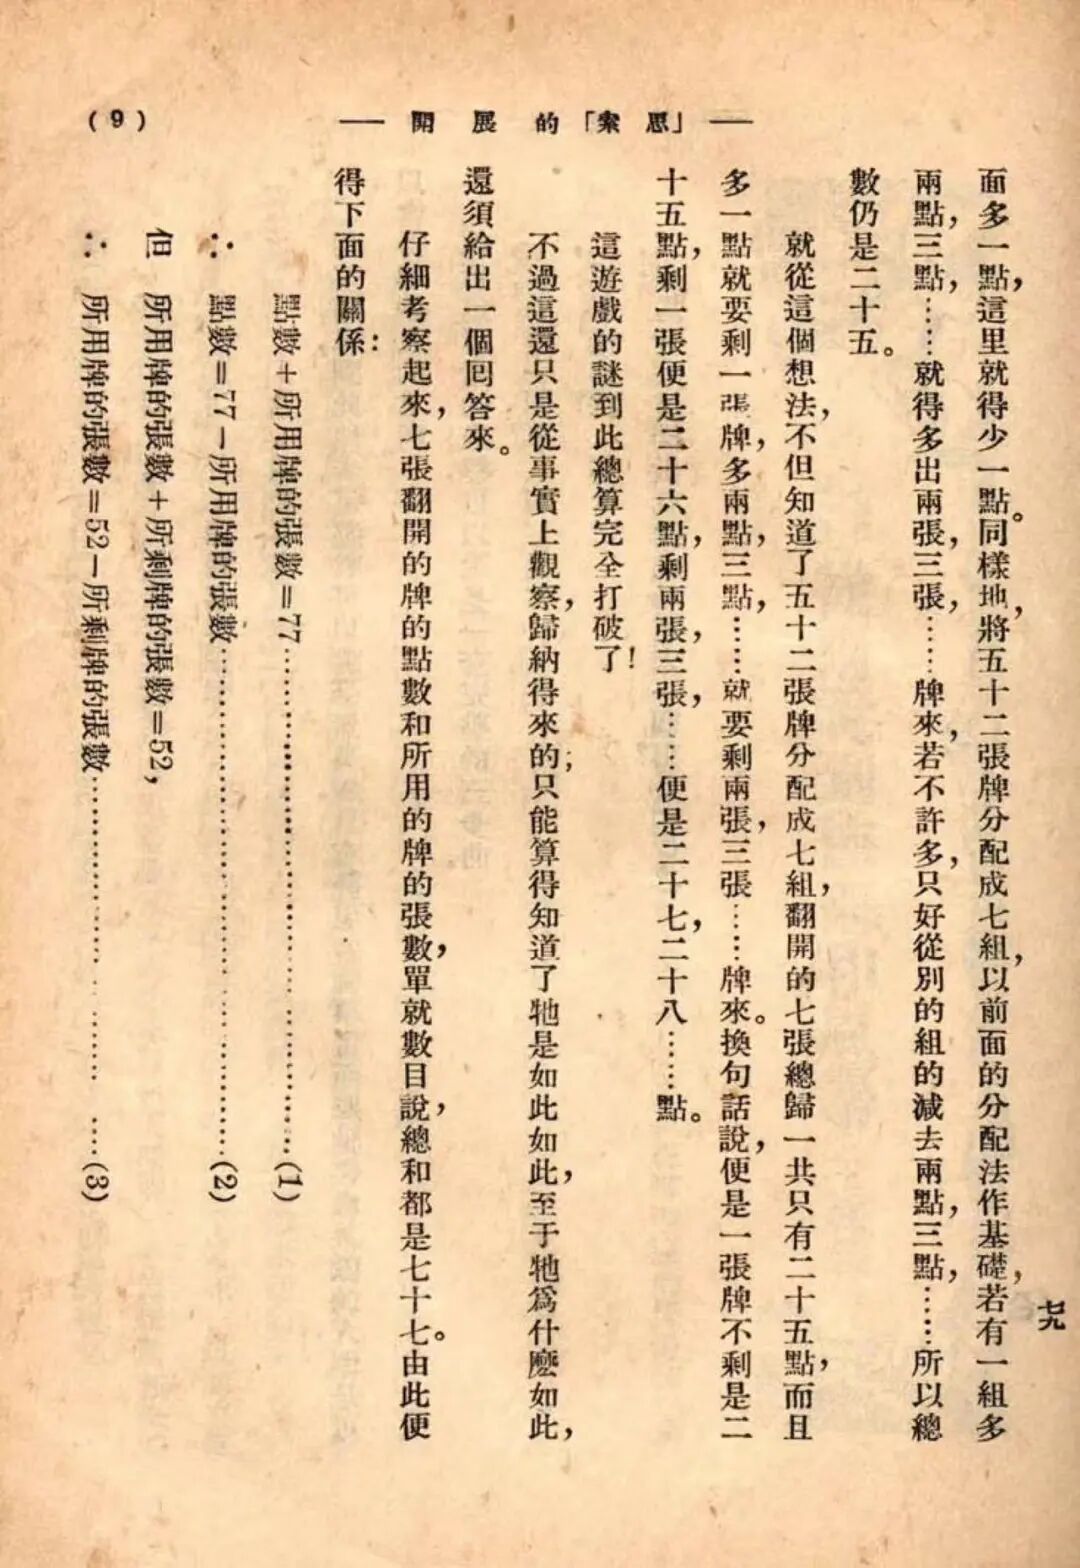 (9)
——開展的「索思」——
七九
面多一點，這里就得少一點。同樣地，將五十二張牌分配成七組，以前面的分配法作基礎，若有一組多
兩點，三點，……就得多出兩張，三張，……牌來，若不許多，只好從別的組的減去兩點，三點，……所以總
數仍是二十五。
就從這個想法，不但知道了五十二張牌分配成七組，翻開的七張總歸一共只有二十五點，而且
多一點就要剩一張牌，多兩點，三點，……就要剩兩張，三張……牌來。換句話說，便是一張牌不剩是二
十五點，剩一張便是二十六點，剩兩張，三張，……便是二十七，二十八……點。
這遊戲的謎到此總算完全打破了！
不過這還只是從事實上觀察，歸納得來的；只能算得知道了牠是如此如此，至于牠爲什麼如此，
還須給出一個囘答來。
仔細考察起來，七張翻開的牌的點數和所用的牌的張數，單就數目說，總和都是七十七。由此便
得下面的關係：
點數＋所用牌的張數＝77……………………(1)
∴ 點數＝77－所用牌的張數……………………(2)
但 所用牌的張數＋所剩牌的張數＝52，
∴ 所用牌的張數＝52－所剩牌的張數……………………(3)